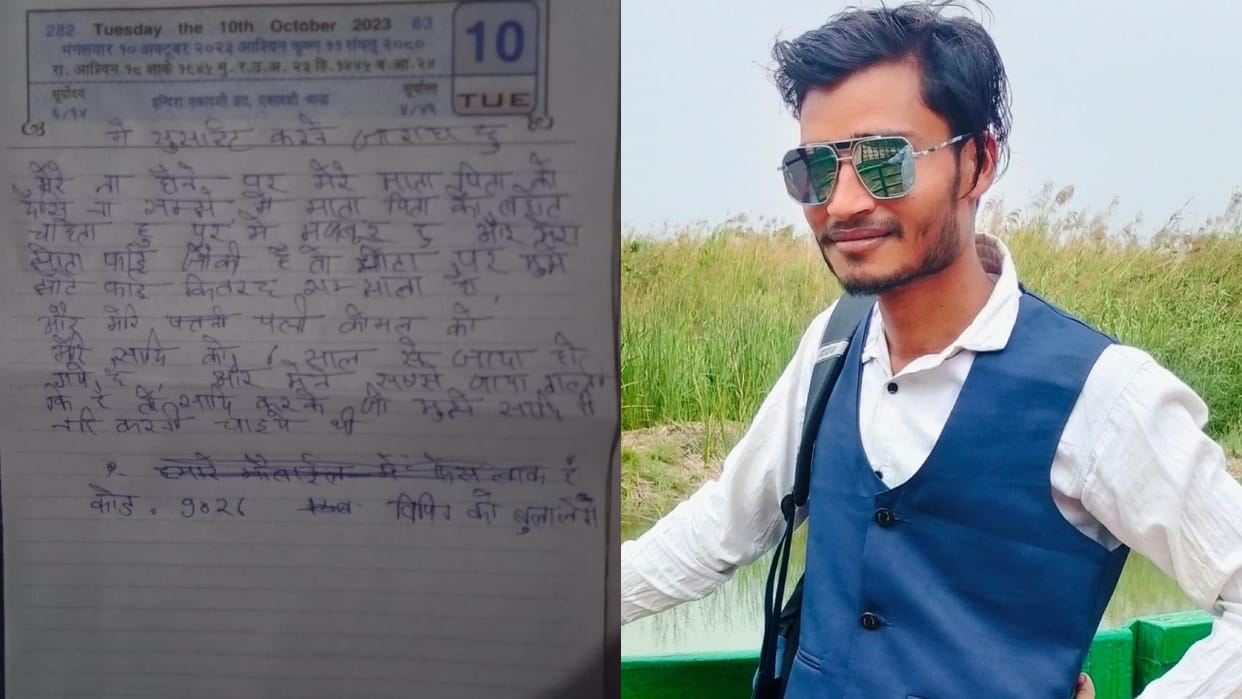 282 Tuesday the 10th October 2023 83
मंगलवार १० अक्टूबर २०२३ आश्विन कृष्ण ११ संवत् २०८०
रा. आश्विन १८ शाके १९४५ मु. र.उ.अ. २३ हि. १४४५ ब.आ. २४
सूर्योदय
६/१४
इन्दिरा एकादशी व्रत, एकादशी श्राद्ध
सूर्यास्त
५/४६
10
TUE
मे सुसाईट करने जा राहा हु
मेरे ना होने पर मेरे माता पिता को
ना समझे मे माता पिता को बहोत
चाहता हु पर मे मजबूर हु और मेरा
छोटा फाई है तो छोटा पर
छोट फाई
और मेरि पत्नी कोमल को
मेरि सादि को ६ साल से जादा होट
गये है और मेने सबसे जादा गलती
कि है सादि करके जो मुझे सादि ही
नहि करनी चाहिये थी
हमारे मोबाईल मे फेस लाक है
कोड = १०२६ विपिन को बुला लेना